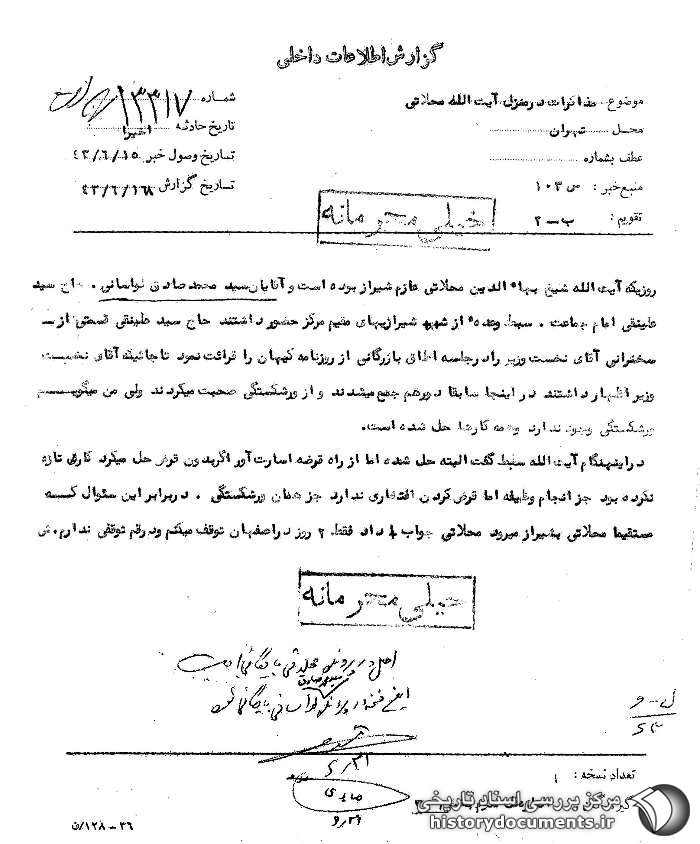 گزارش اطلاعات داخلی
موضوع: مذاکرات در منزل آیت الله محلاتی
محل تهران
عطف بشماره
منبع خبر: س ۱۰۳
تقویم: ب ـ ۲
شماره ۱۳۳۱۷
تاریخ حادثه اخیرا
تاریخ وصول خبر ۴۳/۶/۱۵
تاریخ گزارش ۴۳/۶/۱۶۸
خیلی محرمانه
روزیکه آیت الله شیخ بهاء الدین محلاتی عازم شیراز بوده است و آقایان سید محمد صادق لواسانی . حاج سید
علینقی امام جماعت . سبط وعده از شیرازیهای مقیم مرکز حضور داشتند حاج سید علینقی قسمتی از ـ
سخنرانی آقای نخست وزیر را در جلسه اطاق بازرگانی از روزنامه کیهان را قرائت نمود تا جائیکه آقای نخست
وزیر اظهار داشتند در اینجا سابقا دورهم جمع میشدند و از ورشکستگی صحبت میکردند ولی من میگویم
ورشکستگی وجود ندارد وهمه کارها حل شده است.
در اینهنگام آیت الله سبط گفت البته حل شده اما از راه قرضه اسارت آور اگر بدون قرض حل میکرد کاری تازه
نکرده بود جز انجام وظیفه اما قرض کردن افتخاری ندارد جز همان ورشکستگی . در برابر این سئوال که
مستقیما محلاتی بشیراز میرود محلاتی جواب داد فقط ۲ روز در اصفهان توقف میکنم ودر قم توقفی ندارم. ش
خیلی محرمانه
اصل در پرونده محلاتی بایگانی است
سید محمد صادق
این نسخه در پرونده لواسانی بایگانی شود
۶/۳۱
تعداد نسخه: ۱
۳۶ - ۱۲۸/ن
مرکز بررسی اسناد تاریخی
historydocuments.ir